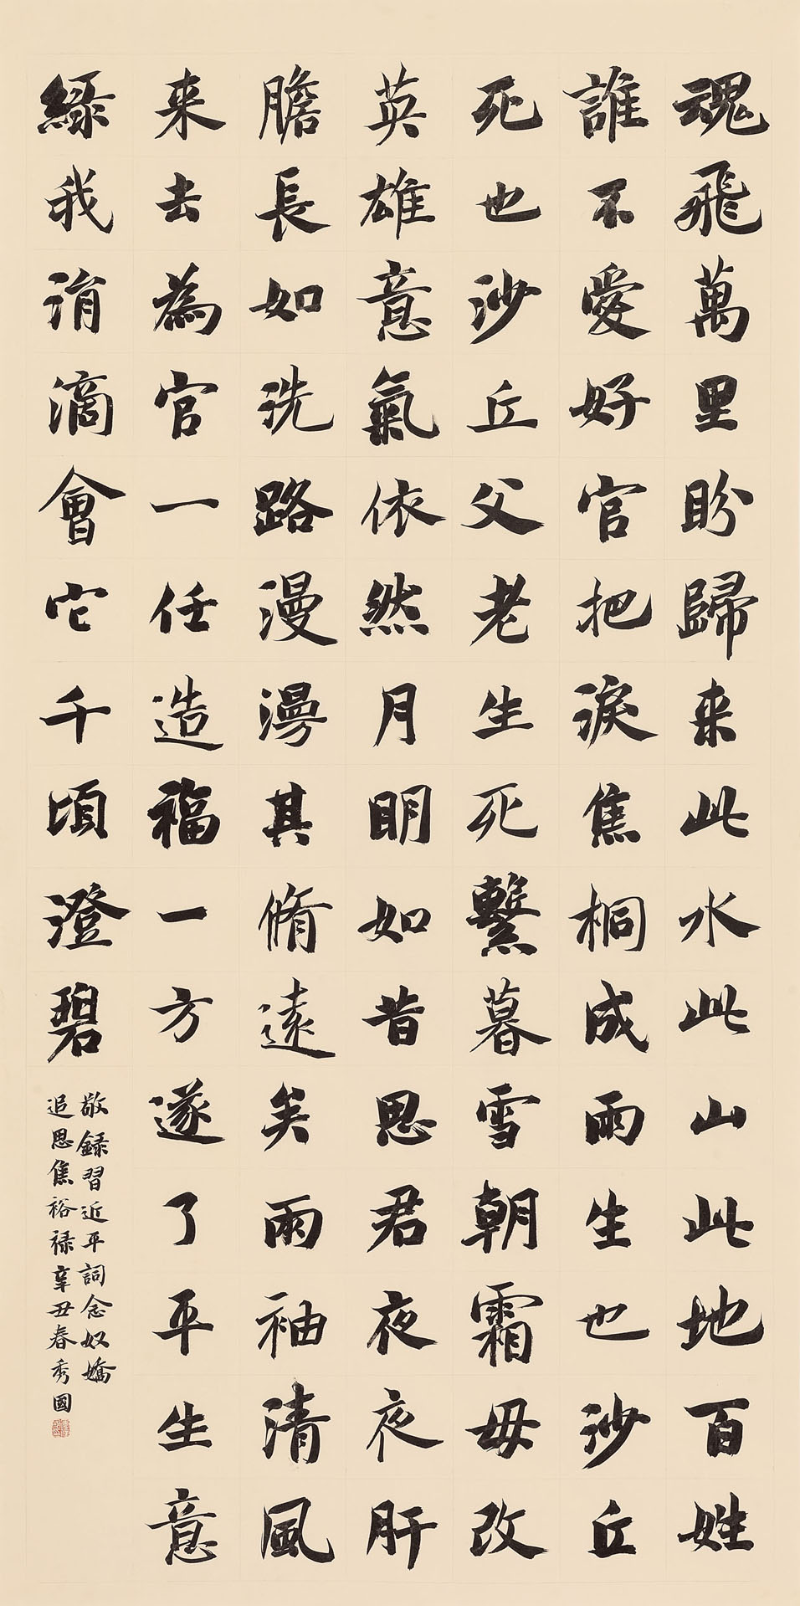 魂飛萬里盼歸来此水此山此地百姓
誰不愛好官把淚焦桐成雨生也沙丘
死也沙丘父老生死繫暮雪朝霜毋改
英雄意氣依然月明如昔思君夜夜肝
膽長如洗路漫漫其脩遠矣兩袖清風
来去為官一任造福一方遂了平生意
綠我涓滴會它千頃澄碧
敬録習近平詞念奴嬌
追思焦裕禄辛丑春秀國